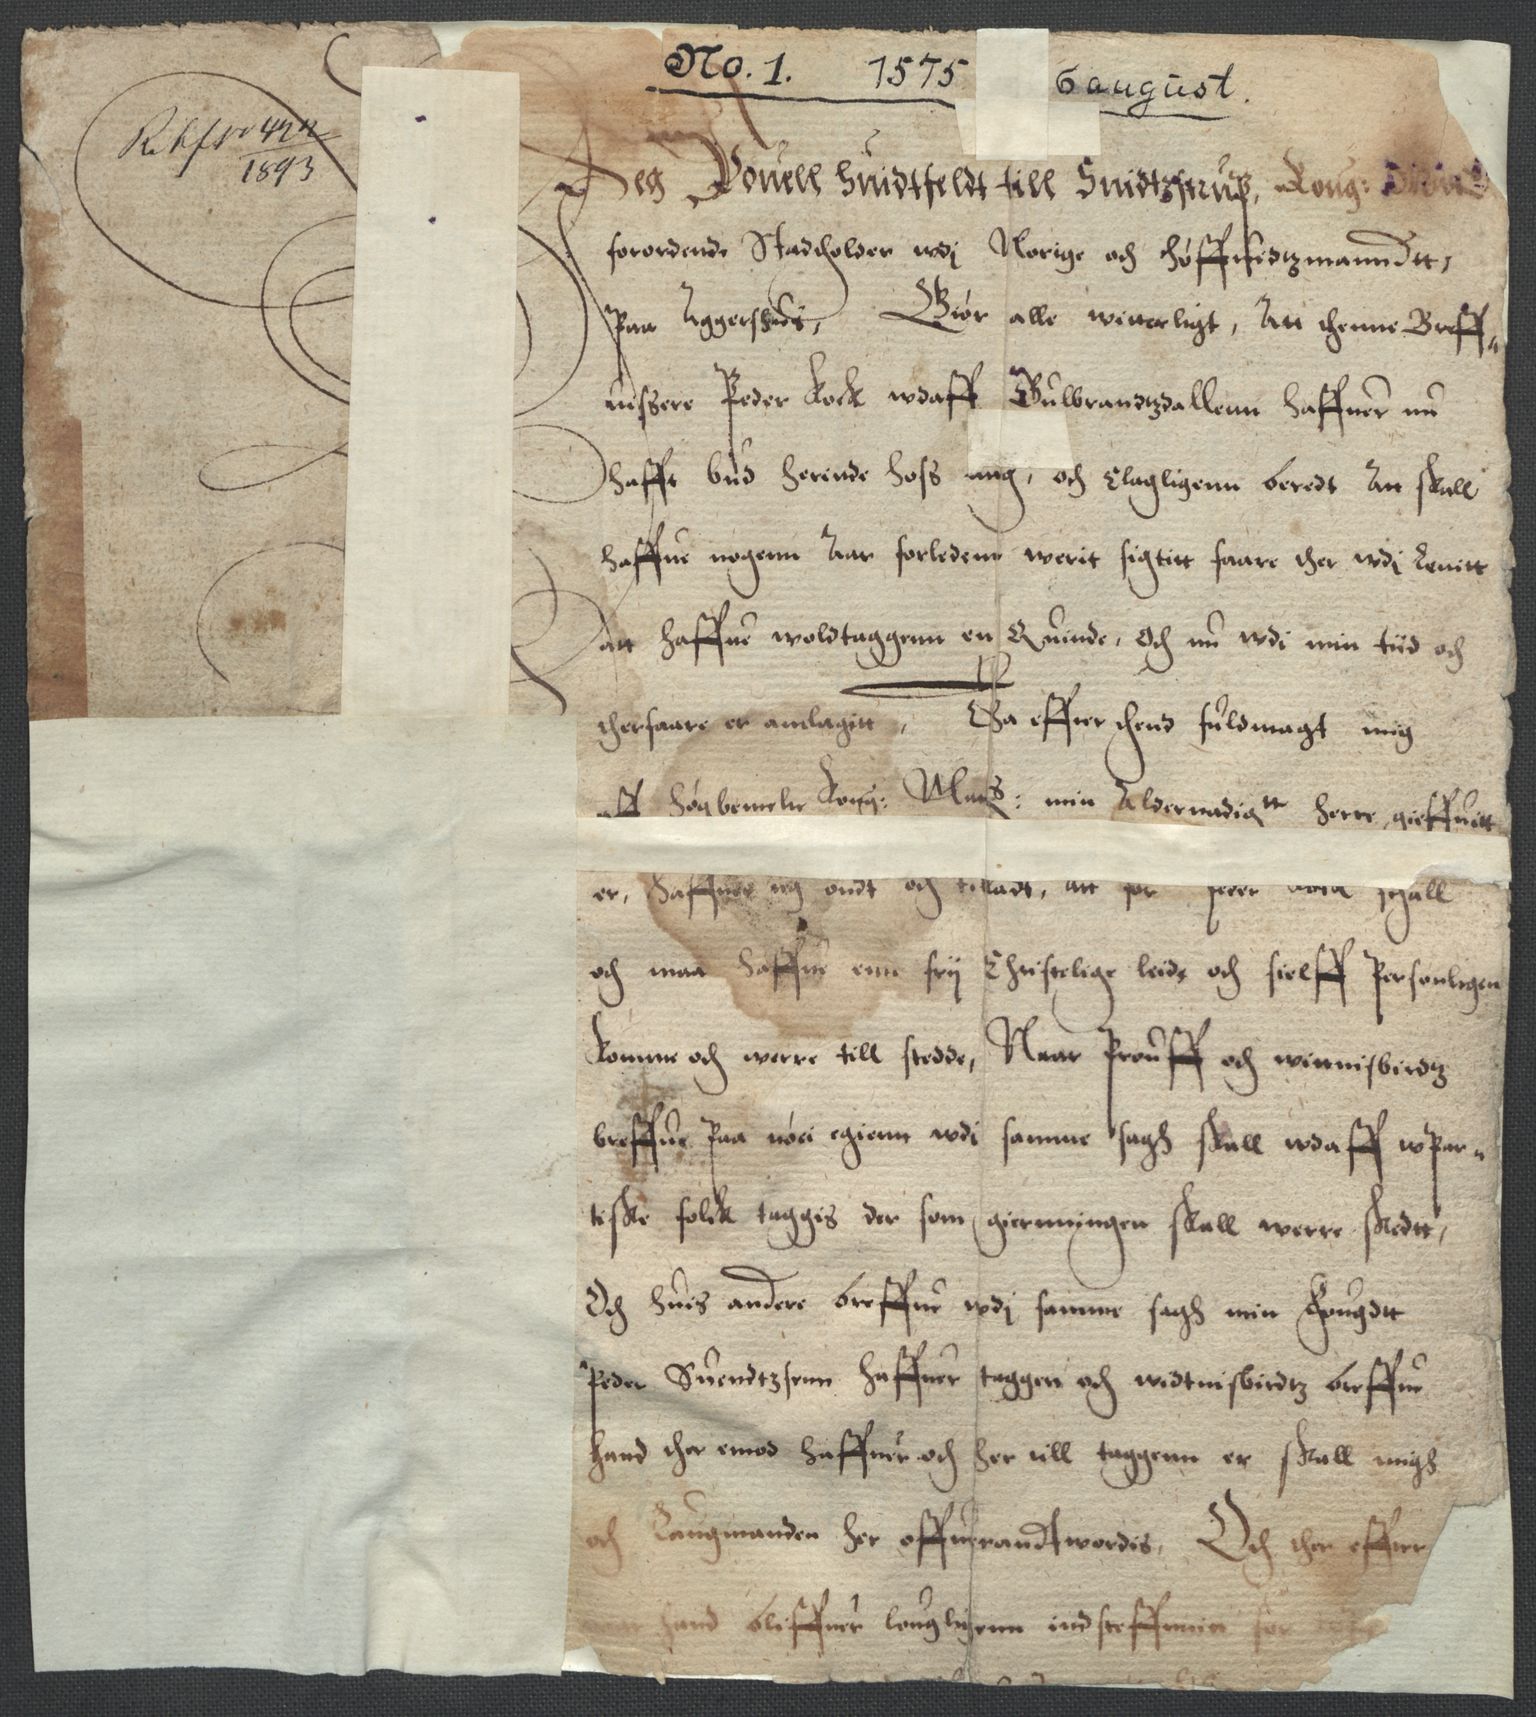 No. 1. 1575 6 august.
1893
Jeg Pouell Huidtfeldt till Huidtzstrup, Kong:
forordende Stadtholder wdj Norige och Høffuidtzmanndtt,
Paa Aggershuus, Giør alle witterligt, Att thenne Breff„
uissere Peder Kock wdaff Gulbrandtzdallenn haffuer nu
hafft bud herinde hoss mig, och Clagligenn beredt Att skall
haffue nogenn Aar forledenn werit sigtitt faare ther wdj Lenitt
att haffue woldtaggenn en Quinde, Och nu wdi min tiid och
therfaare er anclagitt, Tha effter thend fuldmagt mig
aff høgbemelte Kong: Matts: min Aldernadigtt herre gieffuitt
er, haffuer jeg undt och tilladt, att for Peder Kock schall
och maa haffue enn frij Christelige leide och sielff Personligen
komme och werre till stedde, Naar Prouff och winnisbirdtz
breffue Paa nöei egienn wdi samme sagh skall wdaff wPar„
tiske folck taggis der som gierningen skall werre skedtt,
Och huis andere breffue wdj samme sagh min Fougdtt
Peder Suendtzsenn haffuer taggen och widtnisbirdtz breffue
hand ther emod haffuer och her till taggenn er skall migh
och Laugmanden her offuerandtwordis, Och ther effter
naar hand bliffuer louglygenn indsteffnnitt for